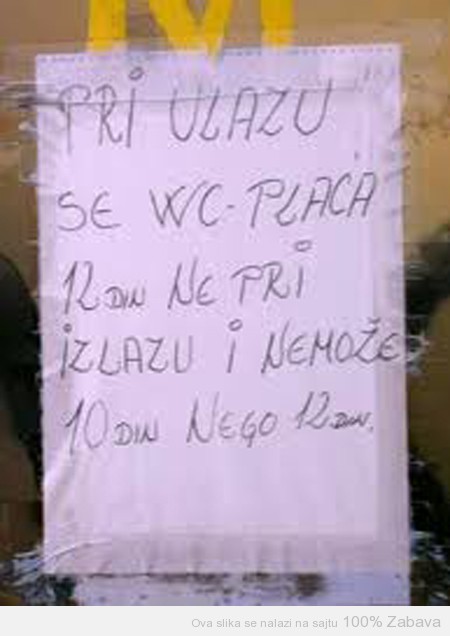 PRI ULAZU
SE WC-PLAĆA
12 DIN NE PRI
IZLAZU I NEMOŽE
10 DIN NEGO 12 DIN.
Ova slika se nalazi na sajtu 100% Zabava